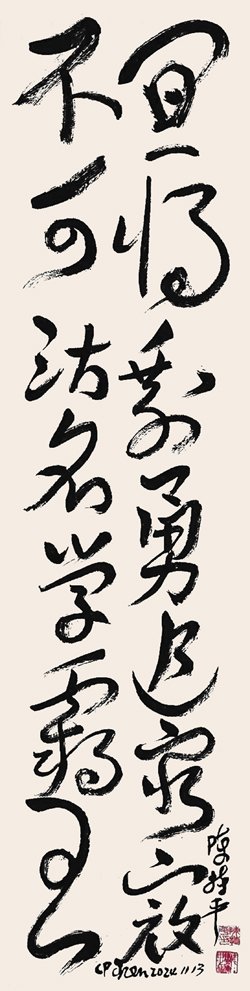 宜将剩勇追穷寇
不可沽名学霸王
CP Chen 2024 11 13